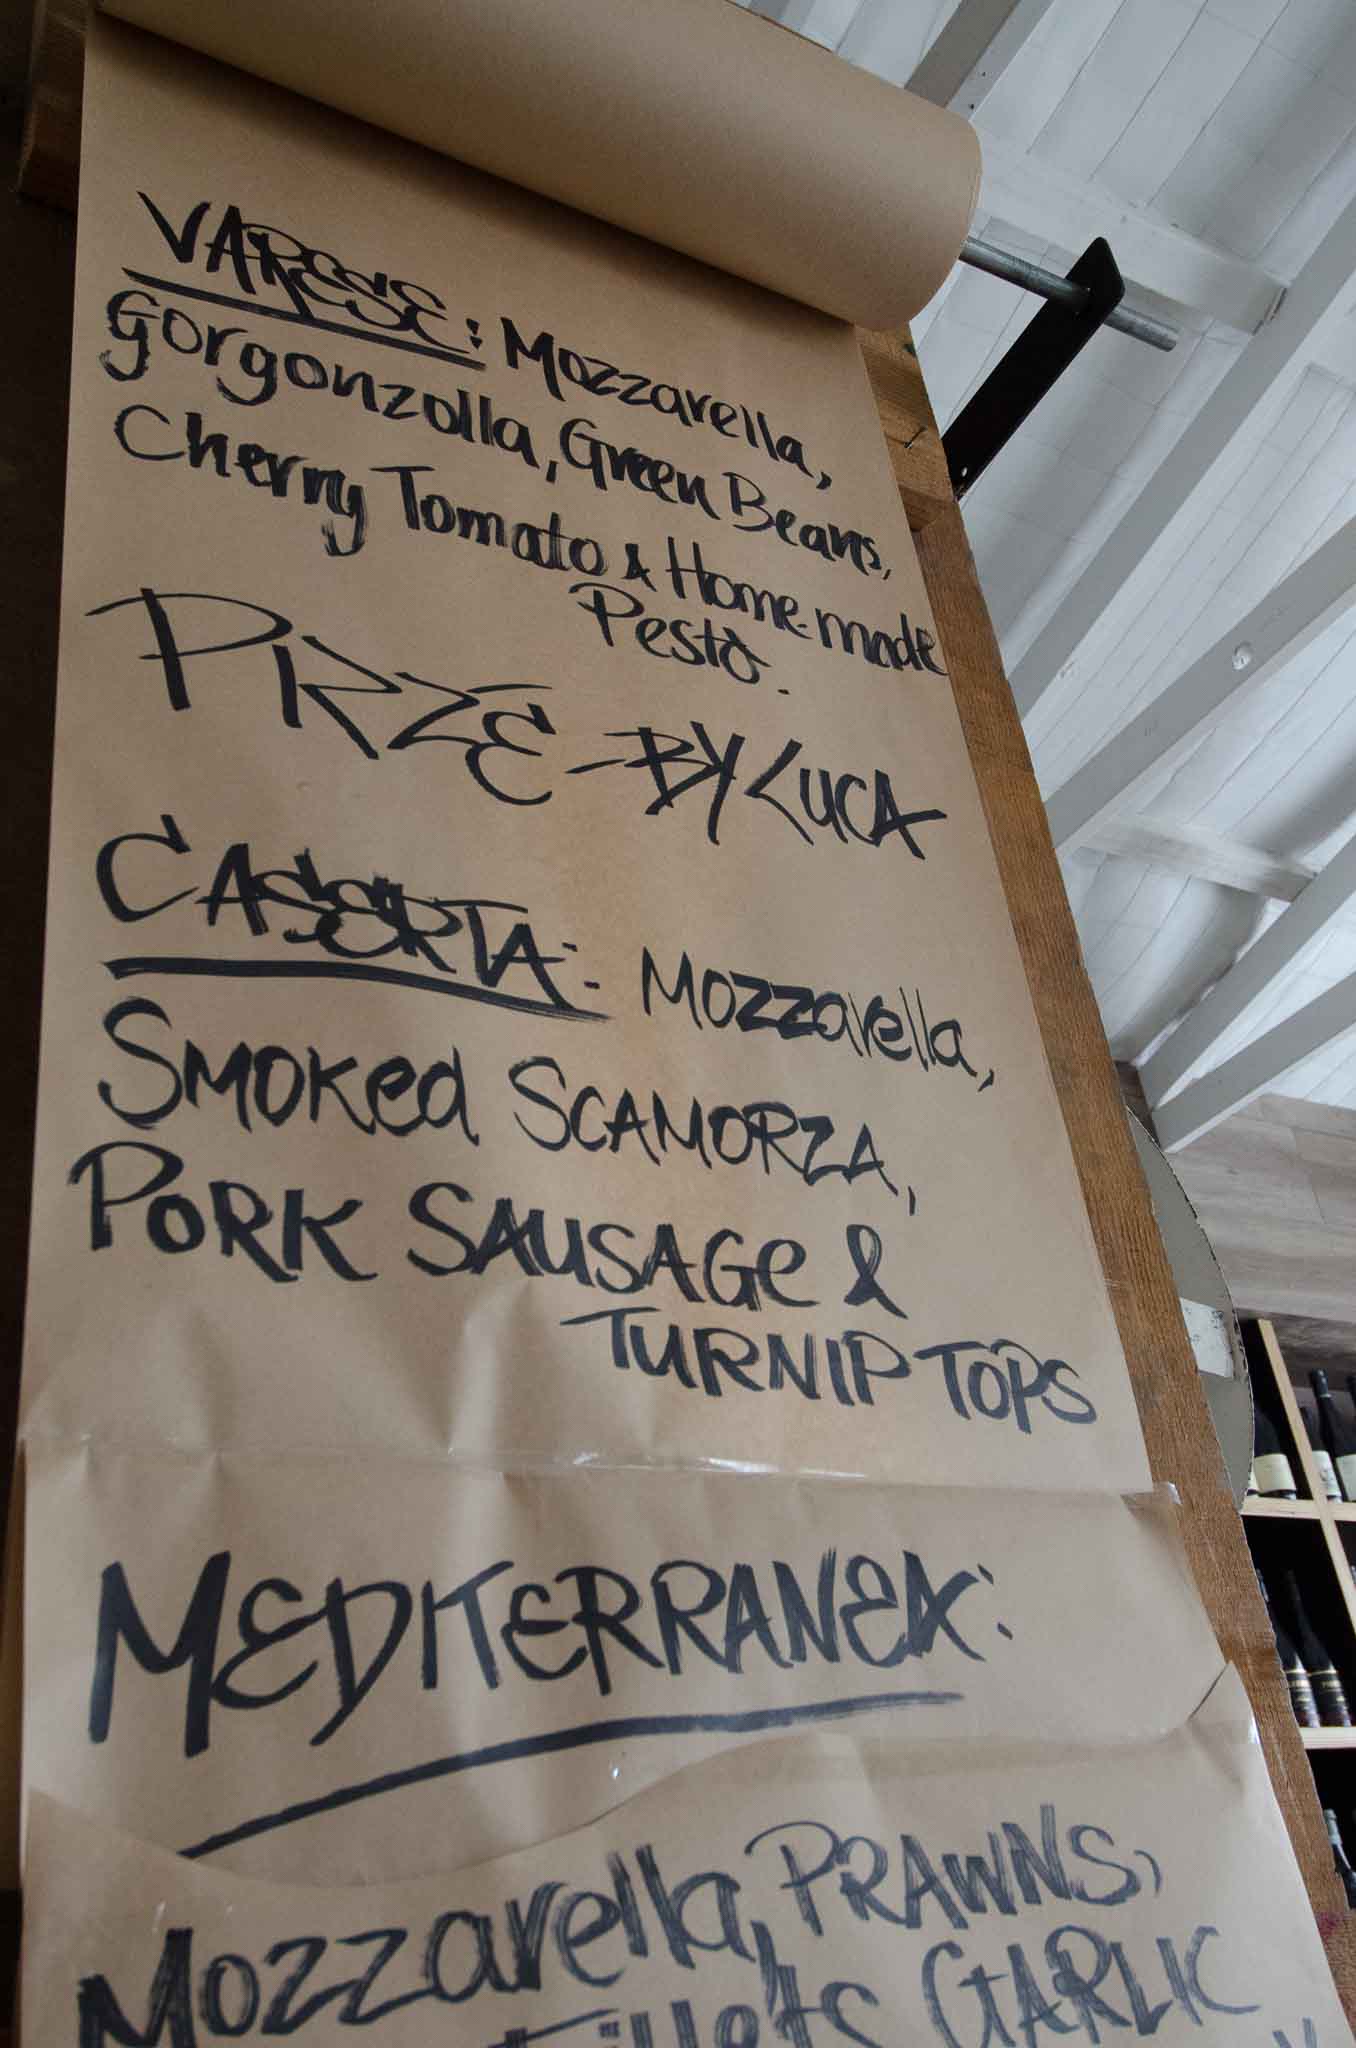 VARESE: Mozzarella,
Gorgonzolla, Green Beans,
Cherry Tomato & Home-made
Pesto.
PIZZE - BY LUCA
CASERTA: Mozzarella,
Smoked SCAMORZA,
PORK SAUSAGe &
TURNIP TOPS
MEDITERRANEA:
Mozzarella, PRAWNS,
Fillets GARLIC